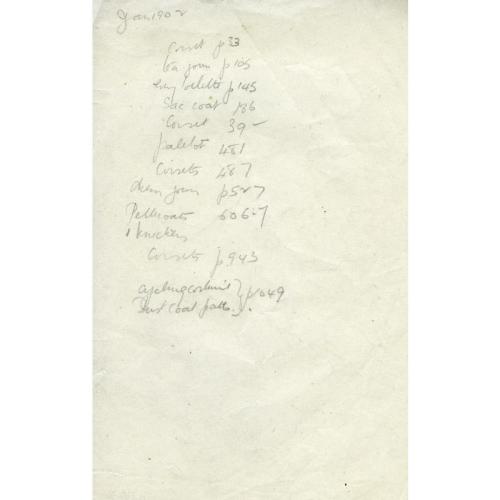 Jan 1902
Corset p 33
tea gown p 105
p 145
Sac coat 186
Corset 39-
paletot 481
Corsets 487
gown p 527
Petticoats 606-7
knickers
Corsets p 943
cycling costume } p 1049
Dust coat patt.